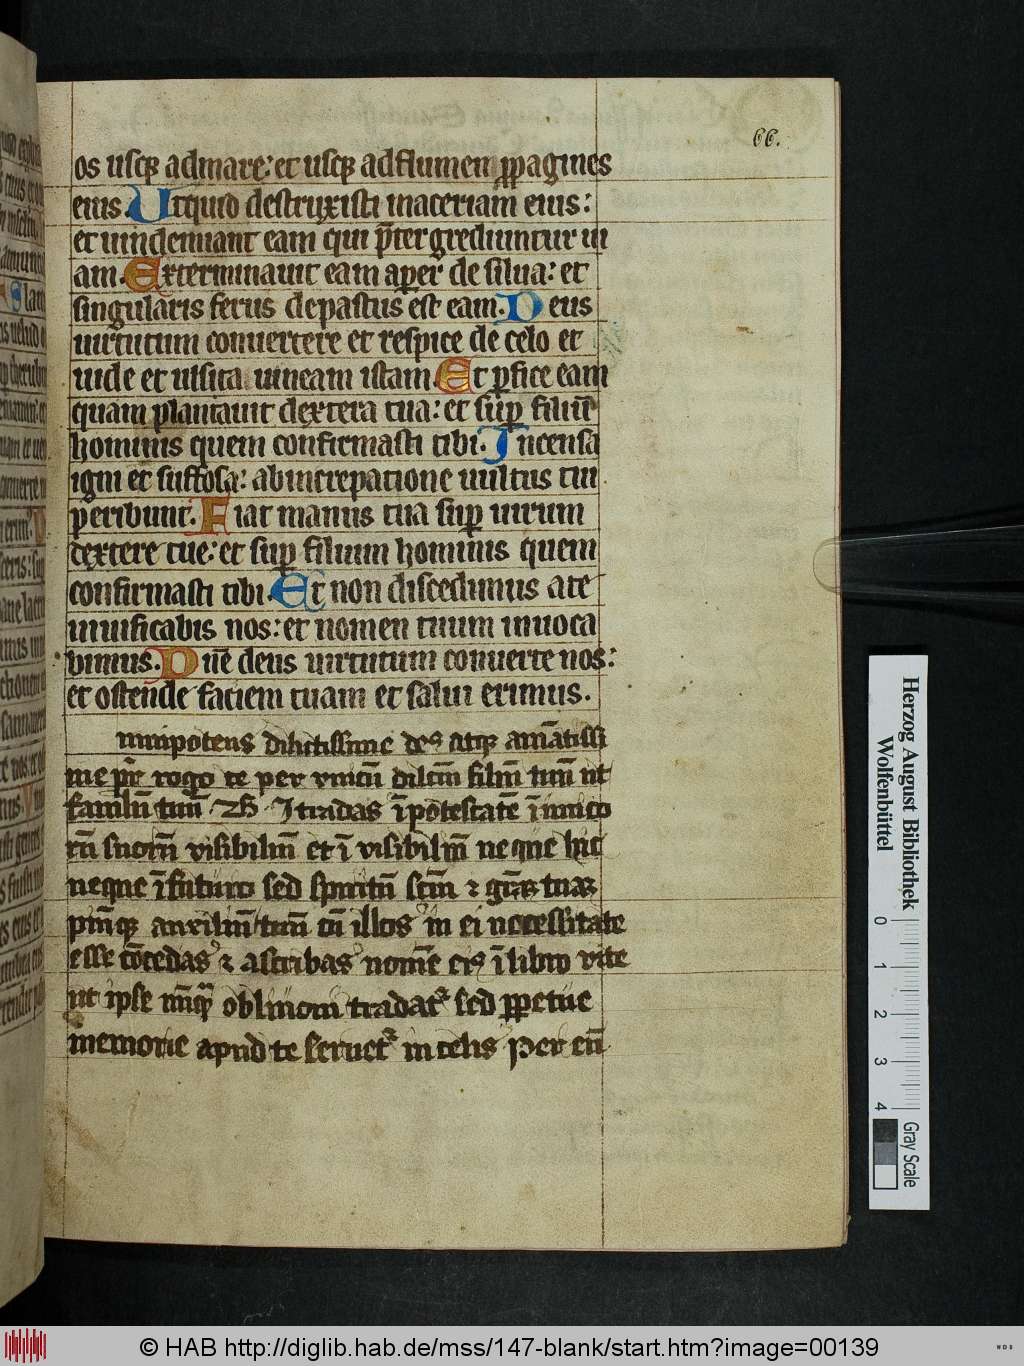 66.
os usq; admare: et usq; adflumen ppagines
eius. Utquid destruxisti maceriam eius:
et uindemiant eam qui p̄tergrediuntur ui
am. Exterminauit eam aper de silua: et
singularis ferus depastus est eam. Deus
uirtutum conuertere et respice de celo et
uide et uisita uineam istam. Et pfice eam
quam plantauit dextera tua: et sup filiū
hominis quem confirmasti tibi. Incensa
igni et suffosa: abincrepatione uultus tui
peribunt. Fiat manus tua sup uirum
dextere tue: et sup filium hominis quem
confirmasti tibi. Et non discedimus ate
uiuificabis nos: et nomen tuum inuoca
bimus. Dn̄e deus uirtutum conuerte nos:
et ostende faciem tuam et salui erimus.
mnipotens dilictissime des atq; amātissi
me pr̄ rogo te per vnicū dilc̄m filiū tuū ut
famulū tuū N tradas ī potestatē īimico
rū suorū visibiliū et ī visibiliū neque hic
neque ī futuro sed spiritū sc̄m ⁊ grās tuas
auxiliū tuū cū illos in ei necessitate
esse cōcedas ⁊ ascribas nomē eis ī libro vite
ut ipse nūq obliuioni tradat sed ppetue
memorie apud te seruet in celis Per eū
Herzog August Bibliothek
Wolfenbüttel
0 1 2 3 4
Gray Scale
© HAB http://diglib.hab.de/mss/147-blank/start.htm?image=00139